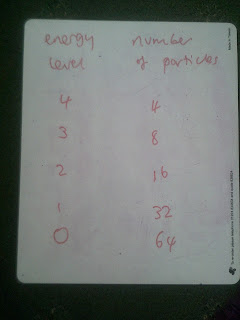 energy number
level of particles
4 4
3 8
2 16
1 32
0 64